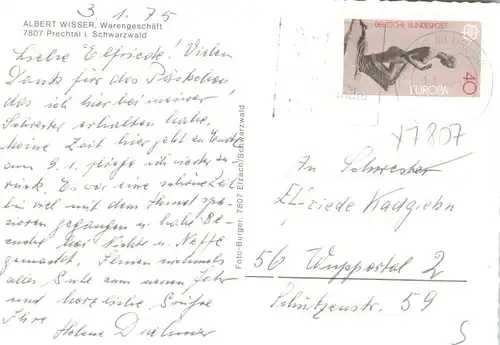 3.1.75
ALBERT WISSER, Warengeschäft
7807 Prechtal i. Schwarzwald
Liebe Elfriede! Vielen
Dank für das Päckchen
das ich hier bei meiner
Schwester erhalten habe.
Meine Zeit hier geht zu Ende
am 9.1. fliege ich wieder zu-
rück. Es war eine schöne Zeit
bin viel mit dem Hund spa-
zieren gegangen u. habe Be-
such bei Nichte u. Neffe
gemacht. Ihnen nochmals
alles Gute zum neuen Jahr
und herzliche Grüße
Ihre
Helene
Foto-Burger, 7807 Elzach/Schwarzwald
DEUTSCHE BUNDESPOST
EUROPA
40
7807
Schwester
56 Wuppertal 2
Schützenstr. 59